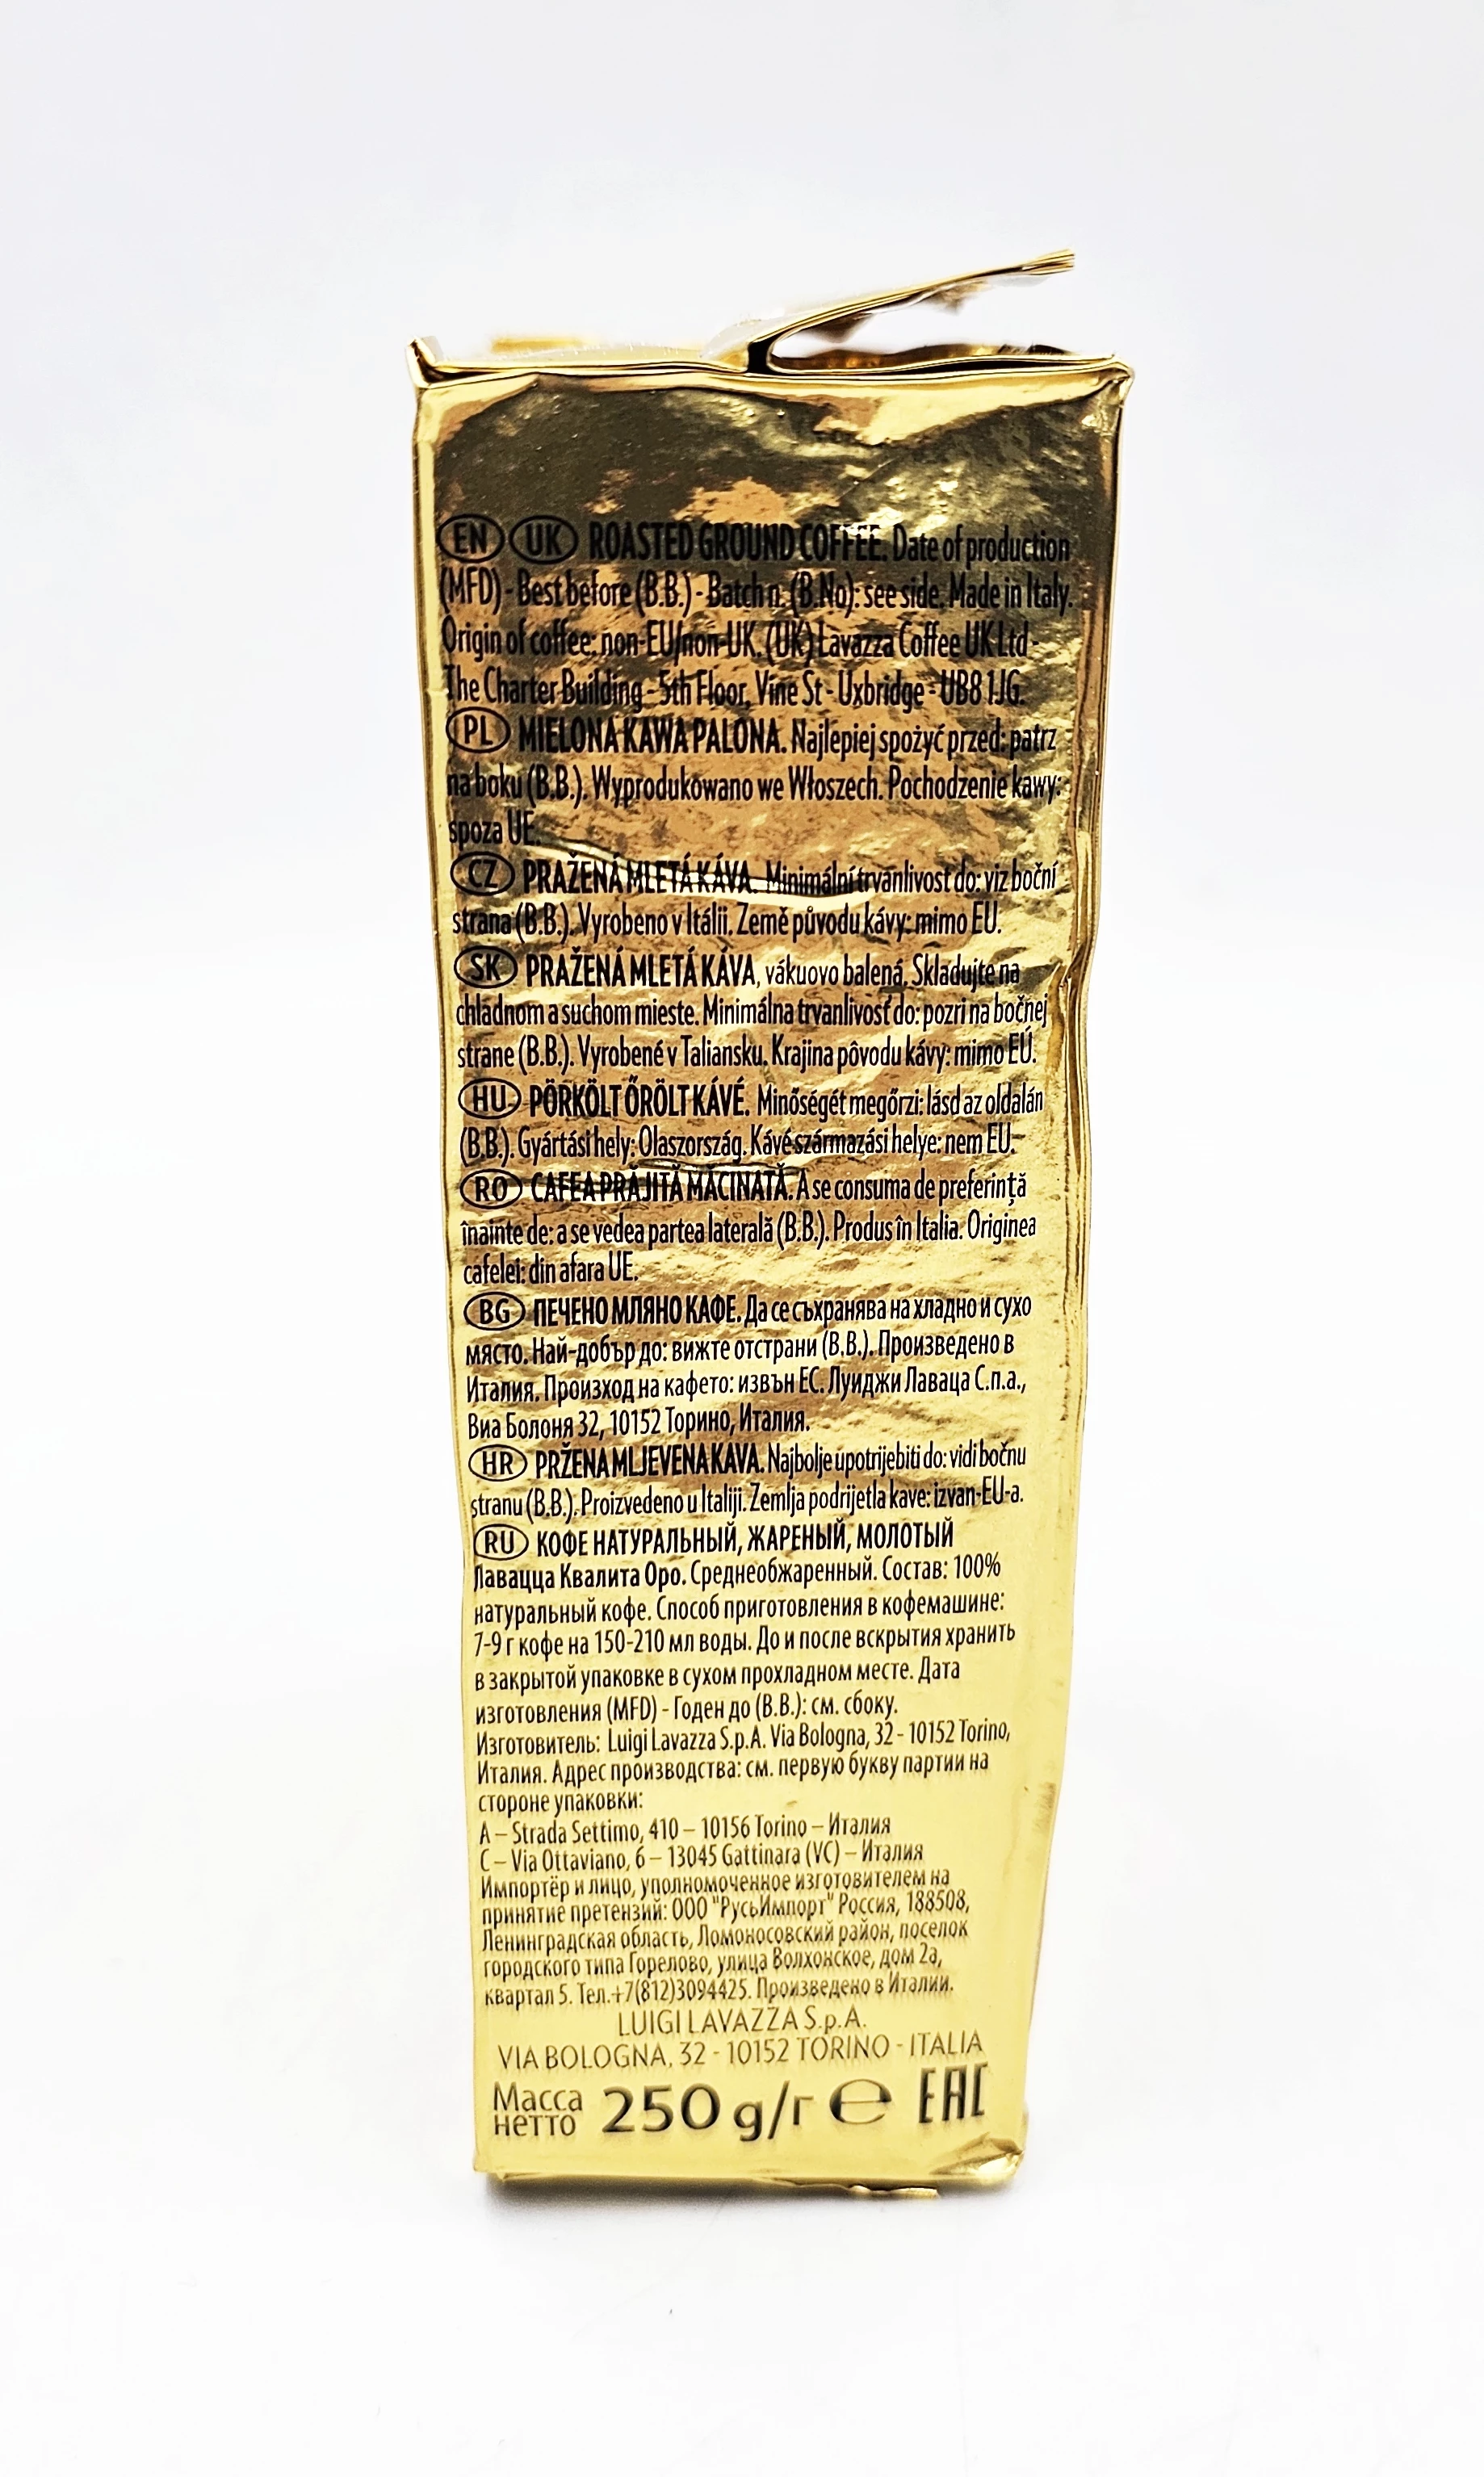 EN UK ROASTED GROUND COFFEE. Date of production
(MFD) - Best before (B.B.) - Batch n. (B.No): see side. Made in Italy.
Origin of coffee: non-EU/non-UK. (UK) Lavazza Coffee UK Ltd -
The Charter Building - 5th Floor, Vine St - Uxbridge - UB8 1JG.
PL MIELONA KAWA PALONA. Najlepiej spożyć przed: patrz
na boku (B.B.). Wyprodukowano we Włoszech. Pochodzenie kawy:
spoza UE.
CZ PRAŽENÁ MLETÁ KÁVA. Minimální trvanlivost do: viz boční
strana (B.B.). Vyrobeno v Itálii. Země původu kávy: mimo EU.
SK PRAŽENÁ MLETÁ KÁVA, vákuovo balená. Skladujte na
chladnom a suchom mieste. Minimálna trvanlivosť do: pozri na bočnej
strane (B.B.). Vyrobené v Taliansku. Krajina pôvodu kávy: mimo EÚ.
HU PÖRKÖLT ŐRÖLT KÁVÉ. Minőségét megőrzi: lásd az oldalán
(B.B.). Gyártási hely: Olaszország. Kávé származási helye: nem EU.
RO CAFEA PRĂJITĂ MĂCINATĂ. A se consuma de preferință
înainte de: a se vedea partea laterală (B.B.). Produs în Italia. Originea
cafelei: din afara UE.
BG ПЕЧЕНО МЛЯНО КАФЕ. Да се съхранява на хладно и сухо
място. Най-добър до: вижте отстрани (B.B.). Произведено в
Италия. Произход на кафето: извън ЕС. Луиджи Лаваца С.п.а.,
Виа Болоня 32, 10152 Торино, Италия.
HR PRŽENA MLJEVENA KAVA. Najbolje upotrijebiti do: vidi bočnu
stranu (B.B.). Proizvedeno u Italiji. Zemlja podrijetla kave: izvan EU-a.
RU КОФЕ НАТУРАЛЬНЫЙ, ЖАРЕНЫЙ, МОЛОТЫЙ
Лавацца Квалита Оро. Среднеобжаренный. Состав: 100%
натуральный кофе. Способ приготовления в кофемашине:
7-9 г кофе на 150-210 мл воды. До и после вскрытия хранить
в закрытой упаковке в сухом прохладном месте. Дата
изготовления (MFD) - Годен до (B.B.): см. сбоку.
Изготовитель: Luigi Lavazza S.p.A. Via Bologna, 32 - 10152 Torino,
Италия. Адрес производства: см. первую букву партии на
стороне упаковки:
A – Strada Settimo, 410 – 10156 Torino – Италия
C – Via Ottaviano, 6 – 13045 Gattinara (VC) – Италия
Импортёр и лицо, уполномоченное изготовителем на
принятие претензий: ООО "РусьИмпорт" Россия, 188508,
Ленинградская область, Ломоносовский район, поселок
городского типа Горелово, улица Волхонское, дом 2а,
квартал 5. Тел.+7(812)3094425. Произведено в Италии.
LUIGI LAVAZZA S.p.A.
VIA BOLOGNA, 32 - 10152 TORINO - ITALIA
Масса
нетто 250 g/г e EAC